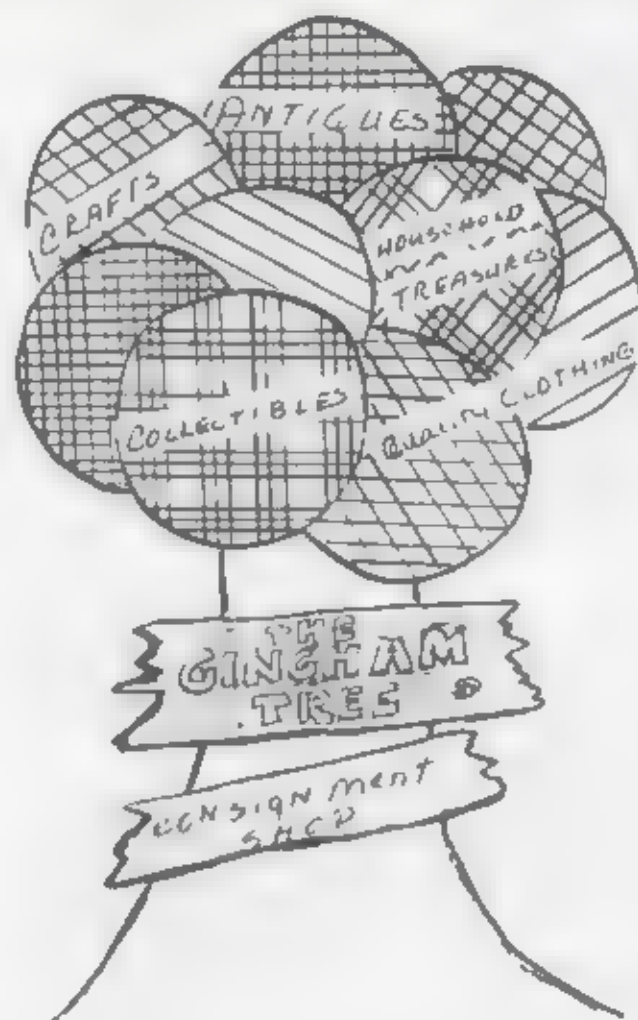 ANTIQUES
CRAFTS
HOUSEHOLD
TREASURES
COLLECTIBLES
QUALITY CLOTHING
THE
GINGHAM
TREE ®
CONSIGNMENT
SHOP